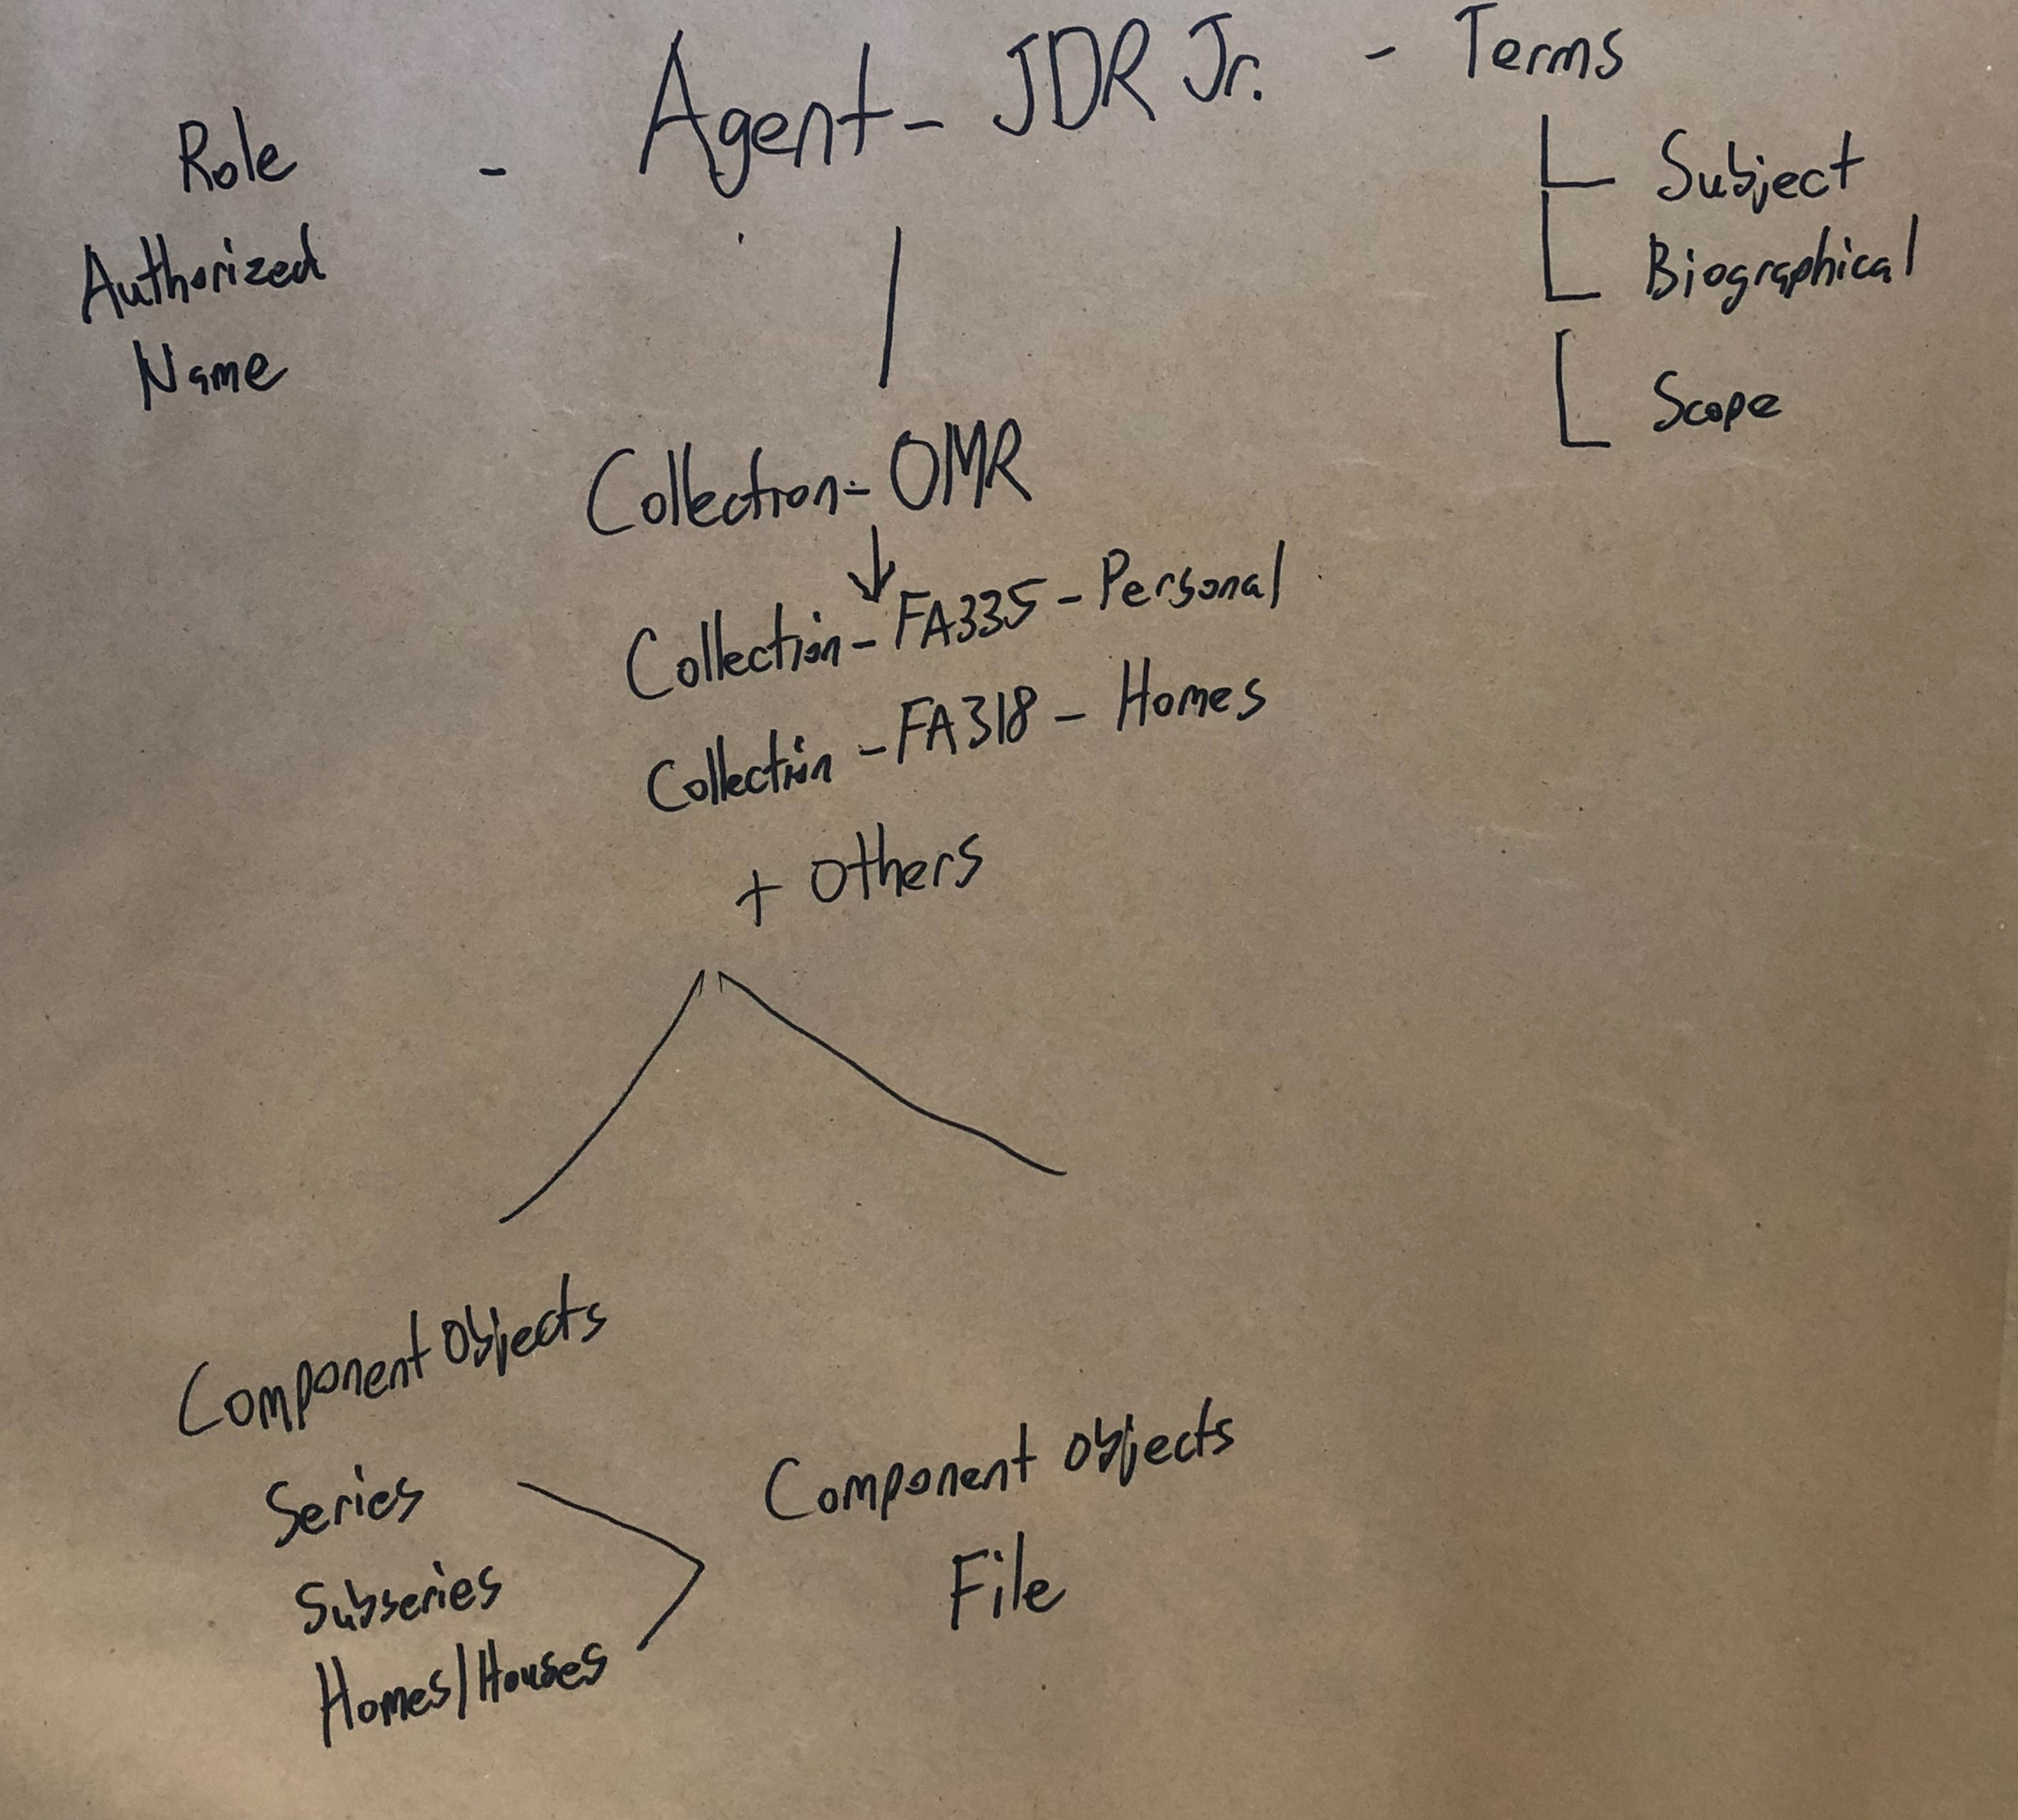 Agent - JDR Jr. - Terms
Role -
Authorized
Name
Subject
Biographical
Scope
Collection - OMR
Collection - FA335 - Personal
Collection - FA318 - Homes
+ Others
Component Objects
Series
Subseries
Homes/Houses
Component Objects
File